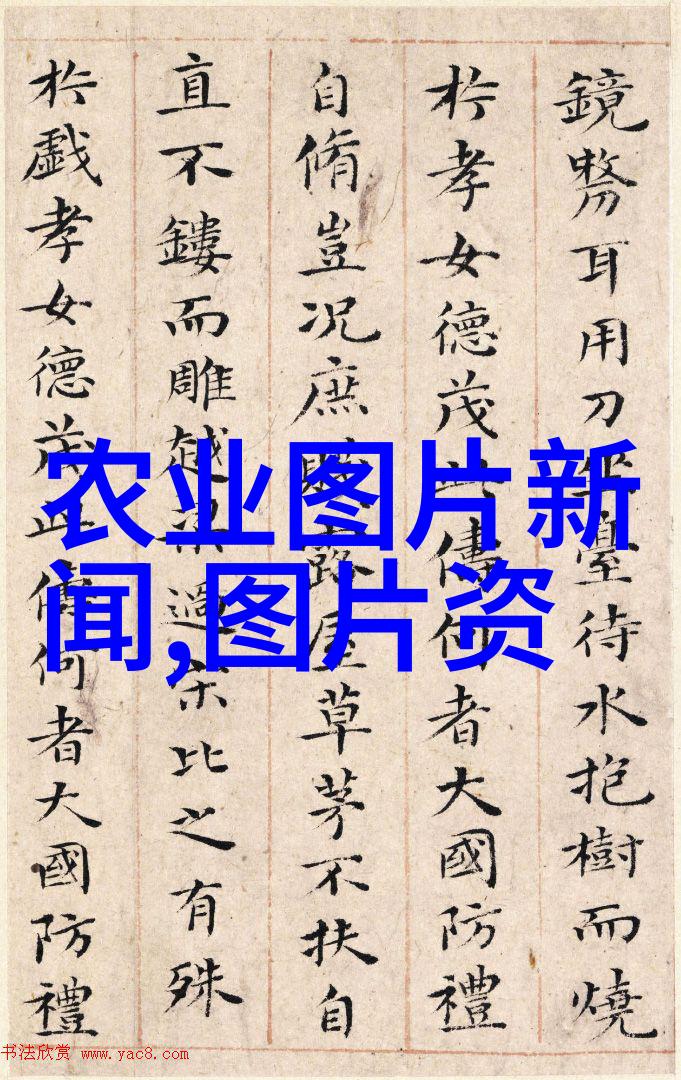 鏡剺耳用刀坐臺待水抱樹而燒
於孝女德茂此儔何者大國防禮
自脩豈况庶賤露屋草茅不扶自
直不鏤而雕越梁過宋比之有殊
於戲孝女德茂此儔何者大國防禮
农业图片新
闻,图片资
书法欣赏 www.yac8.com